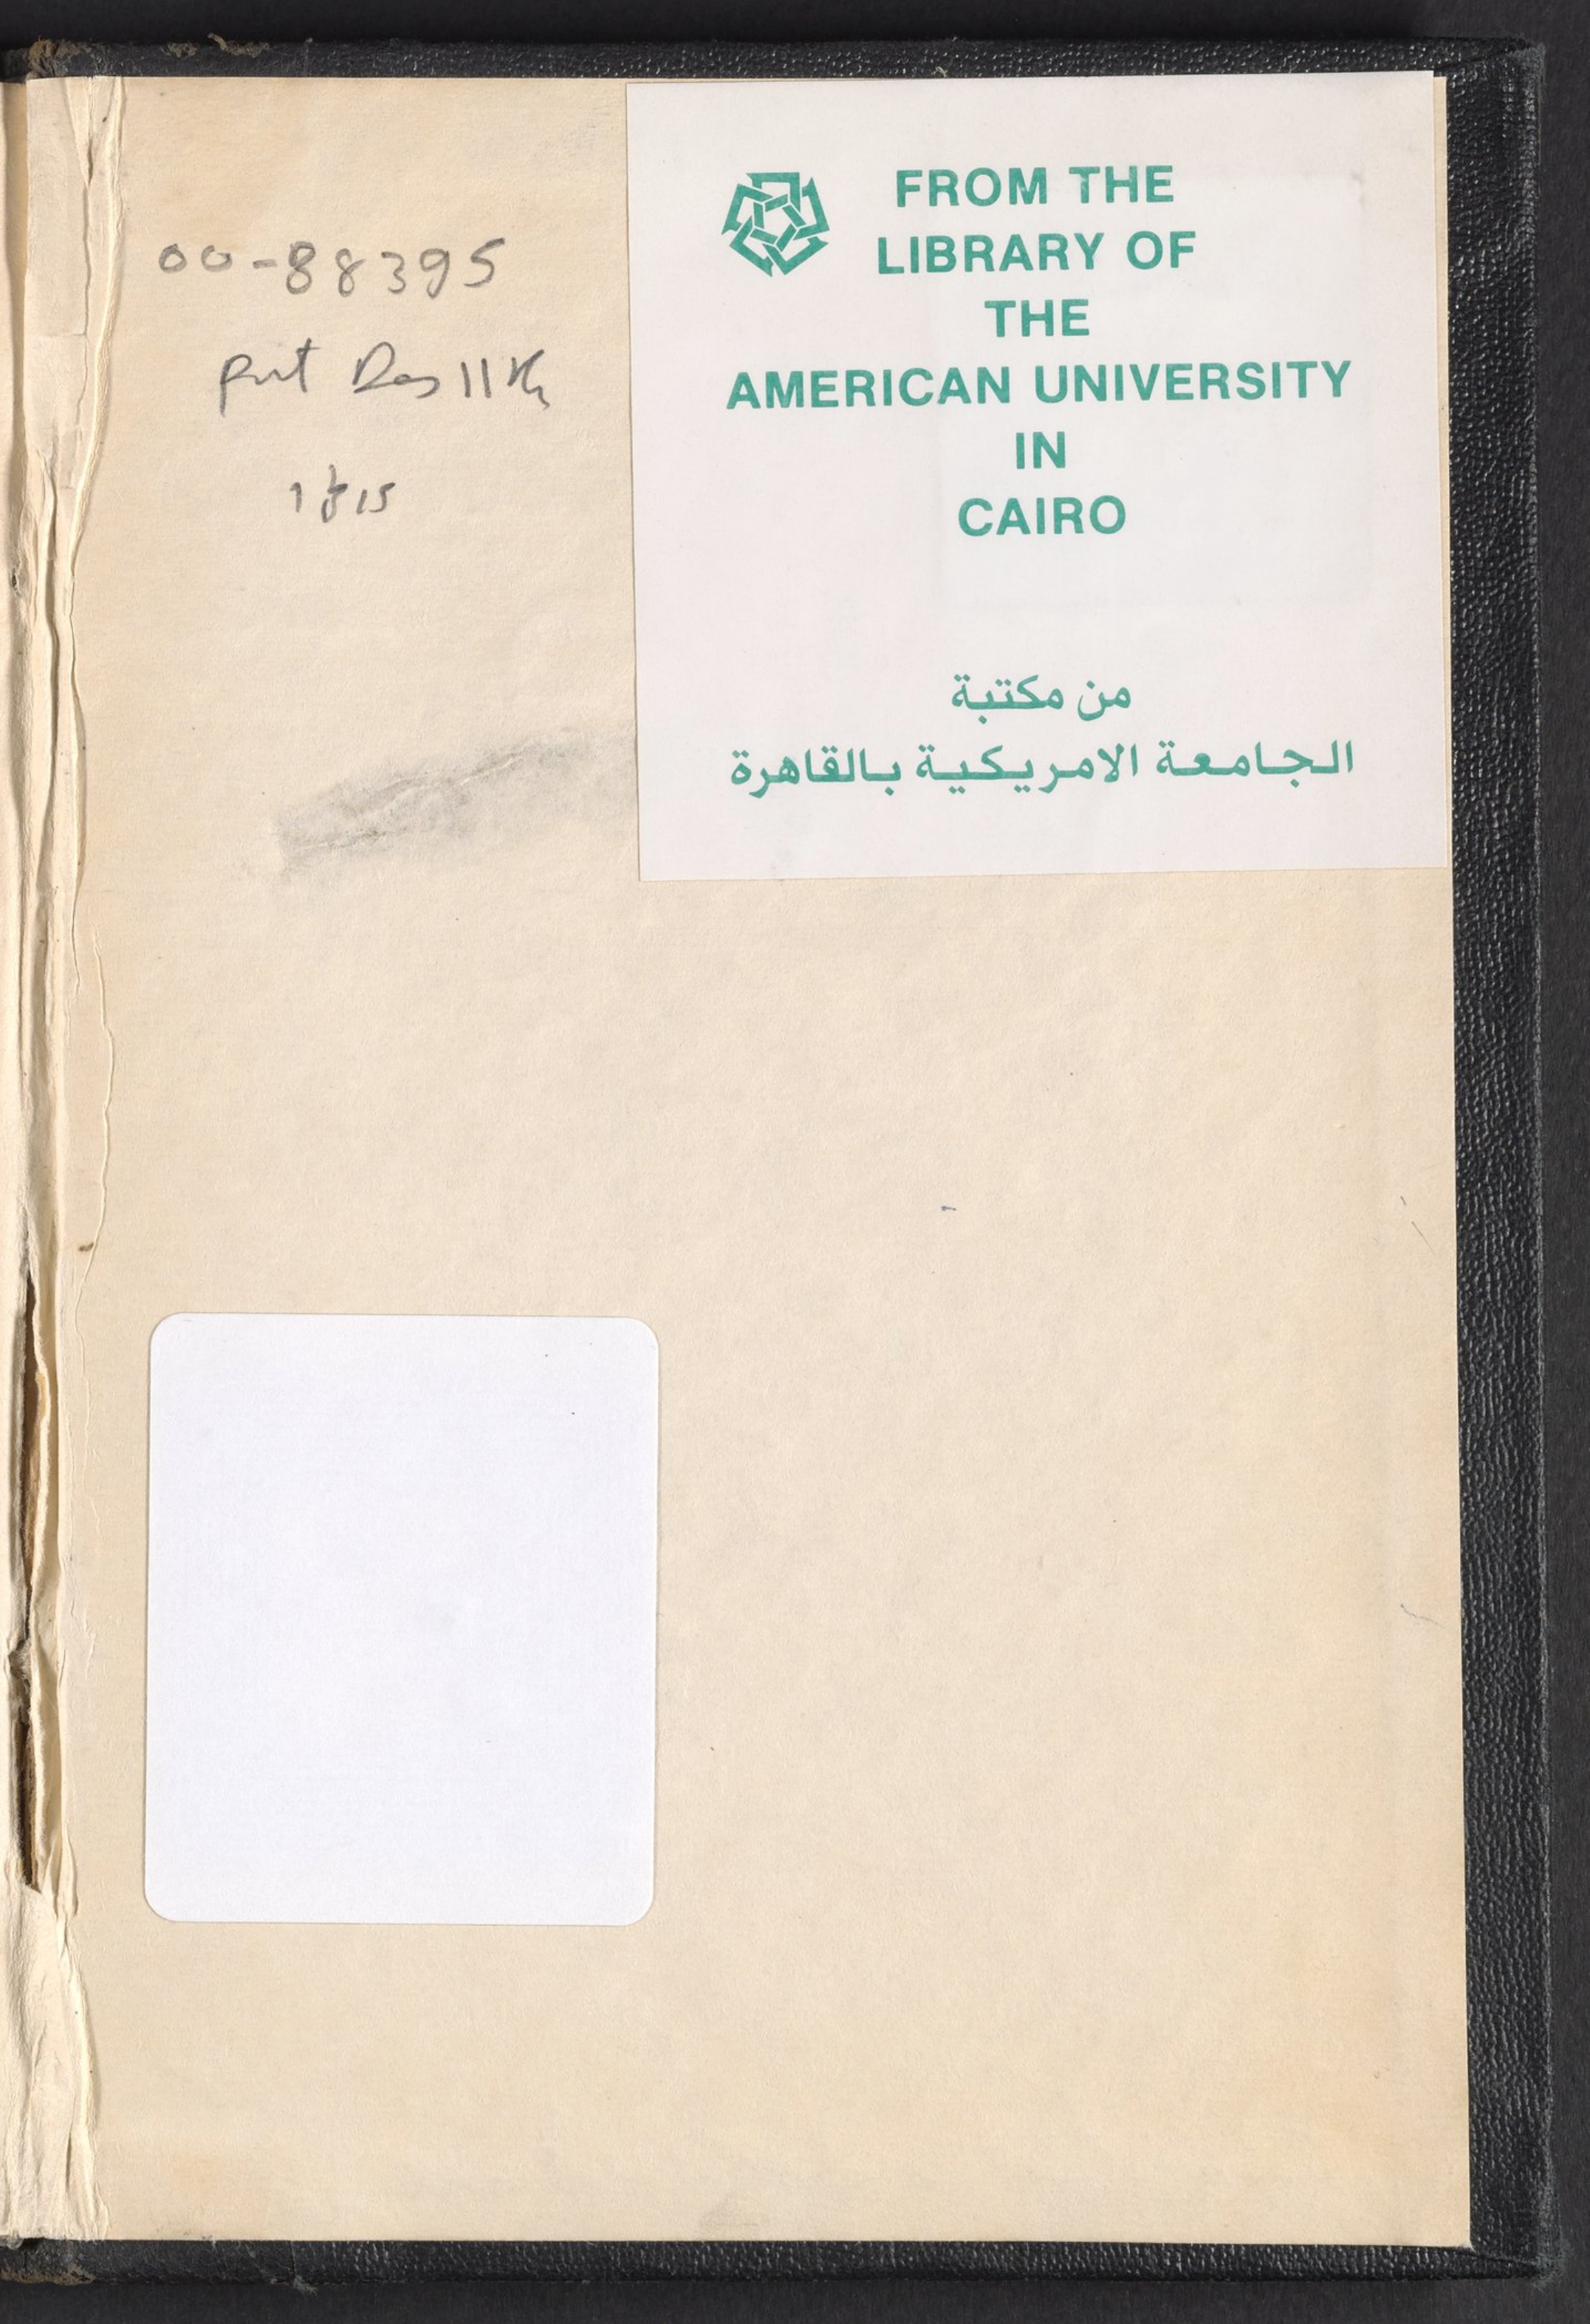 00-88395
FROM THE
LIBRARY OF
THE
AMERICAN UNIVERSITY
IN
CAIRO
من مكتبة
الجامعة الامريكية بالقاهرة